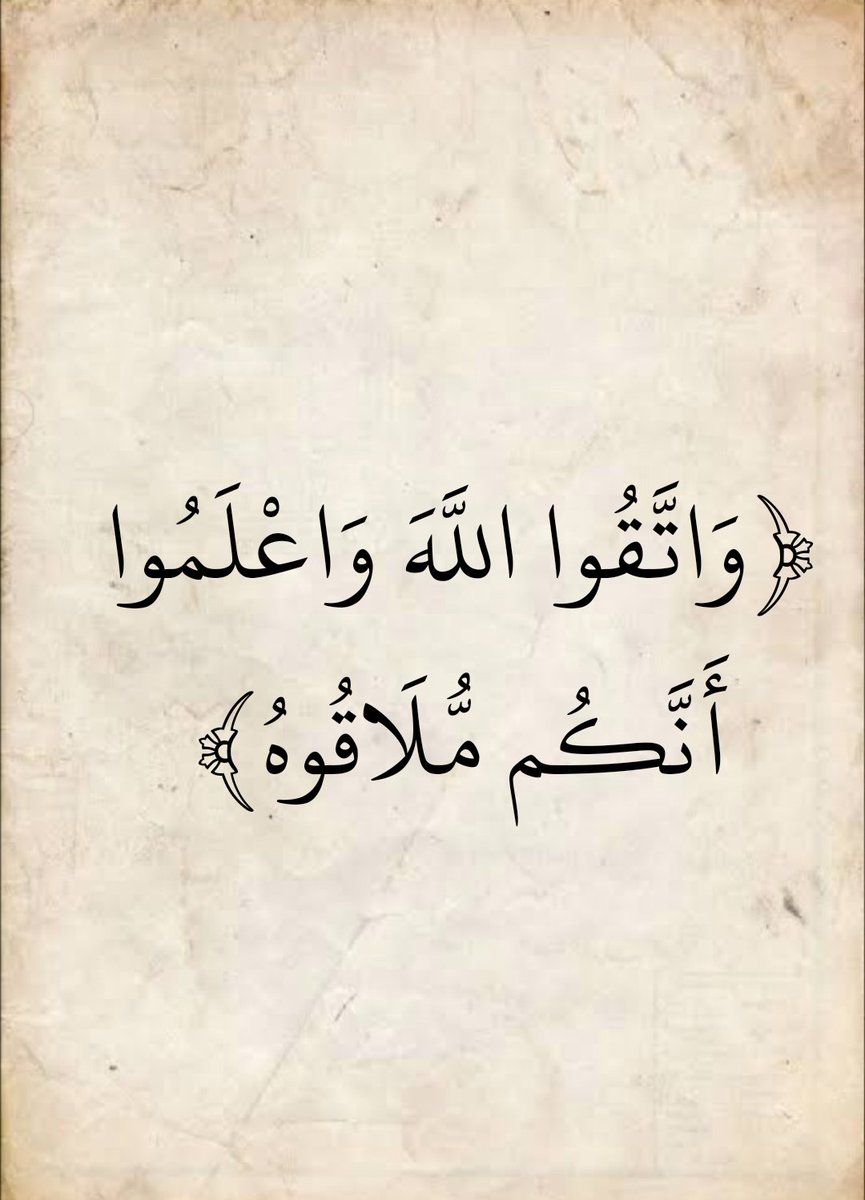 ﴿وَاتَّقُوا اللَّهَ وَاعْلَمُوا
أَنَّكُم مُّلَاقُوهُ﴾